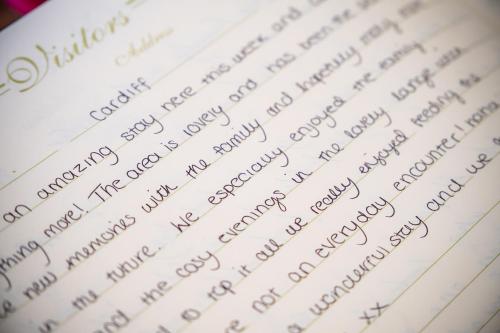 Visitors
Address
Cardiff
an amazing stay here this week and
thing more! The area is lovely and has been the
new memories with the family and hopefully many more
in the future. We especially enjoyed the family
and the cosy evenings in the lovely lounge
to top it all we really enjoyed feeding the
not an everyday encounter!
a wonderful stay and we
xx